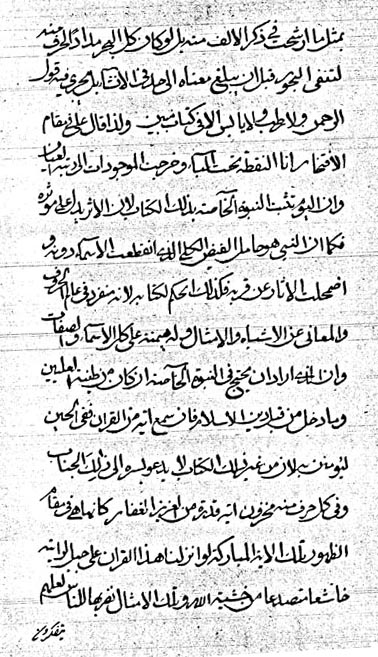 بمثل ما ارشحت في ذكر الالف منه بل لو كان كل البحر مدادا لحرف منه
لتنفى البحور قبل ان يبلغ معناه الى حد في الانشاء بل يجري فيه قول
الرحمن ولا رطب ولا يابس الا في كتاب مبين ولذا قال علي في مقام
الافتخار انا النقطة تحت الباء وخرجت الموجودات الى رتبة
وان اليوم تثبت النبوة الخاصة بذلك الكتاب لان الاثر يدل على مؤثره
فكما ان النبي هو حامل الفيض الكلي الذي انقطعت الاسماء دونه و
اضمحلت الاثار عن قربه فكذلك الحكم لكتابه لانه متفرد في عالم الحروف
والمعاني عن الاشباه والامثال وله هيمنة على كل الاسماء والصفات
وان الذي اراد ان يحتج في النبوة الخاصة ان كان من طينة العليين
وما دخل من قبل دين الاسلام فان سمع اية من القران ففي الحين
ليؤمنن به لان من غير ذلك الكتاب لا يدعو سره الى ذلك الجناب
وفي كل حرف منه مخزون اية قدرة من لعزيز الغفار كانما هي في مقام
الظهور تلك الاية المباركة لو انزلنا هذا القران على جبل لرايته
خاشعا متصدعا من خشية الله وتلك الامثال نضربها للناس لعلهم
يتفكرون